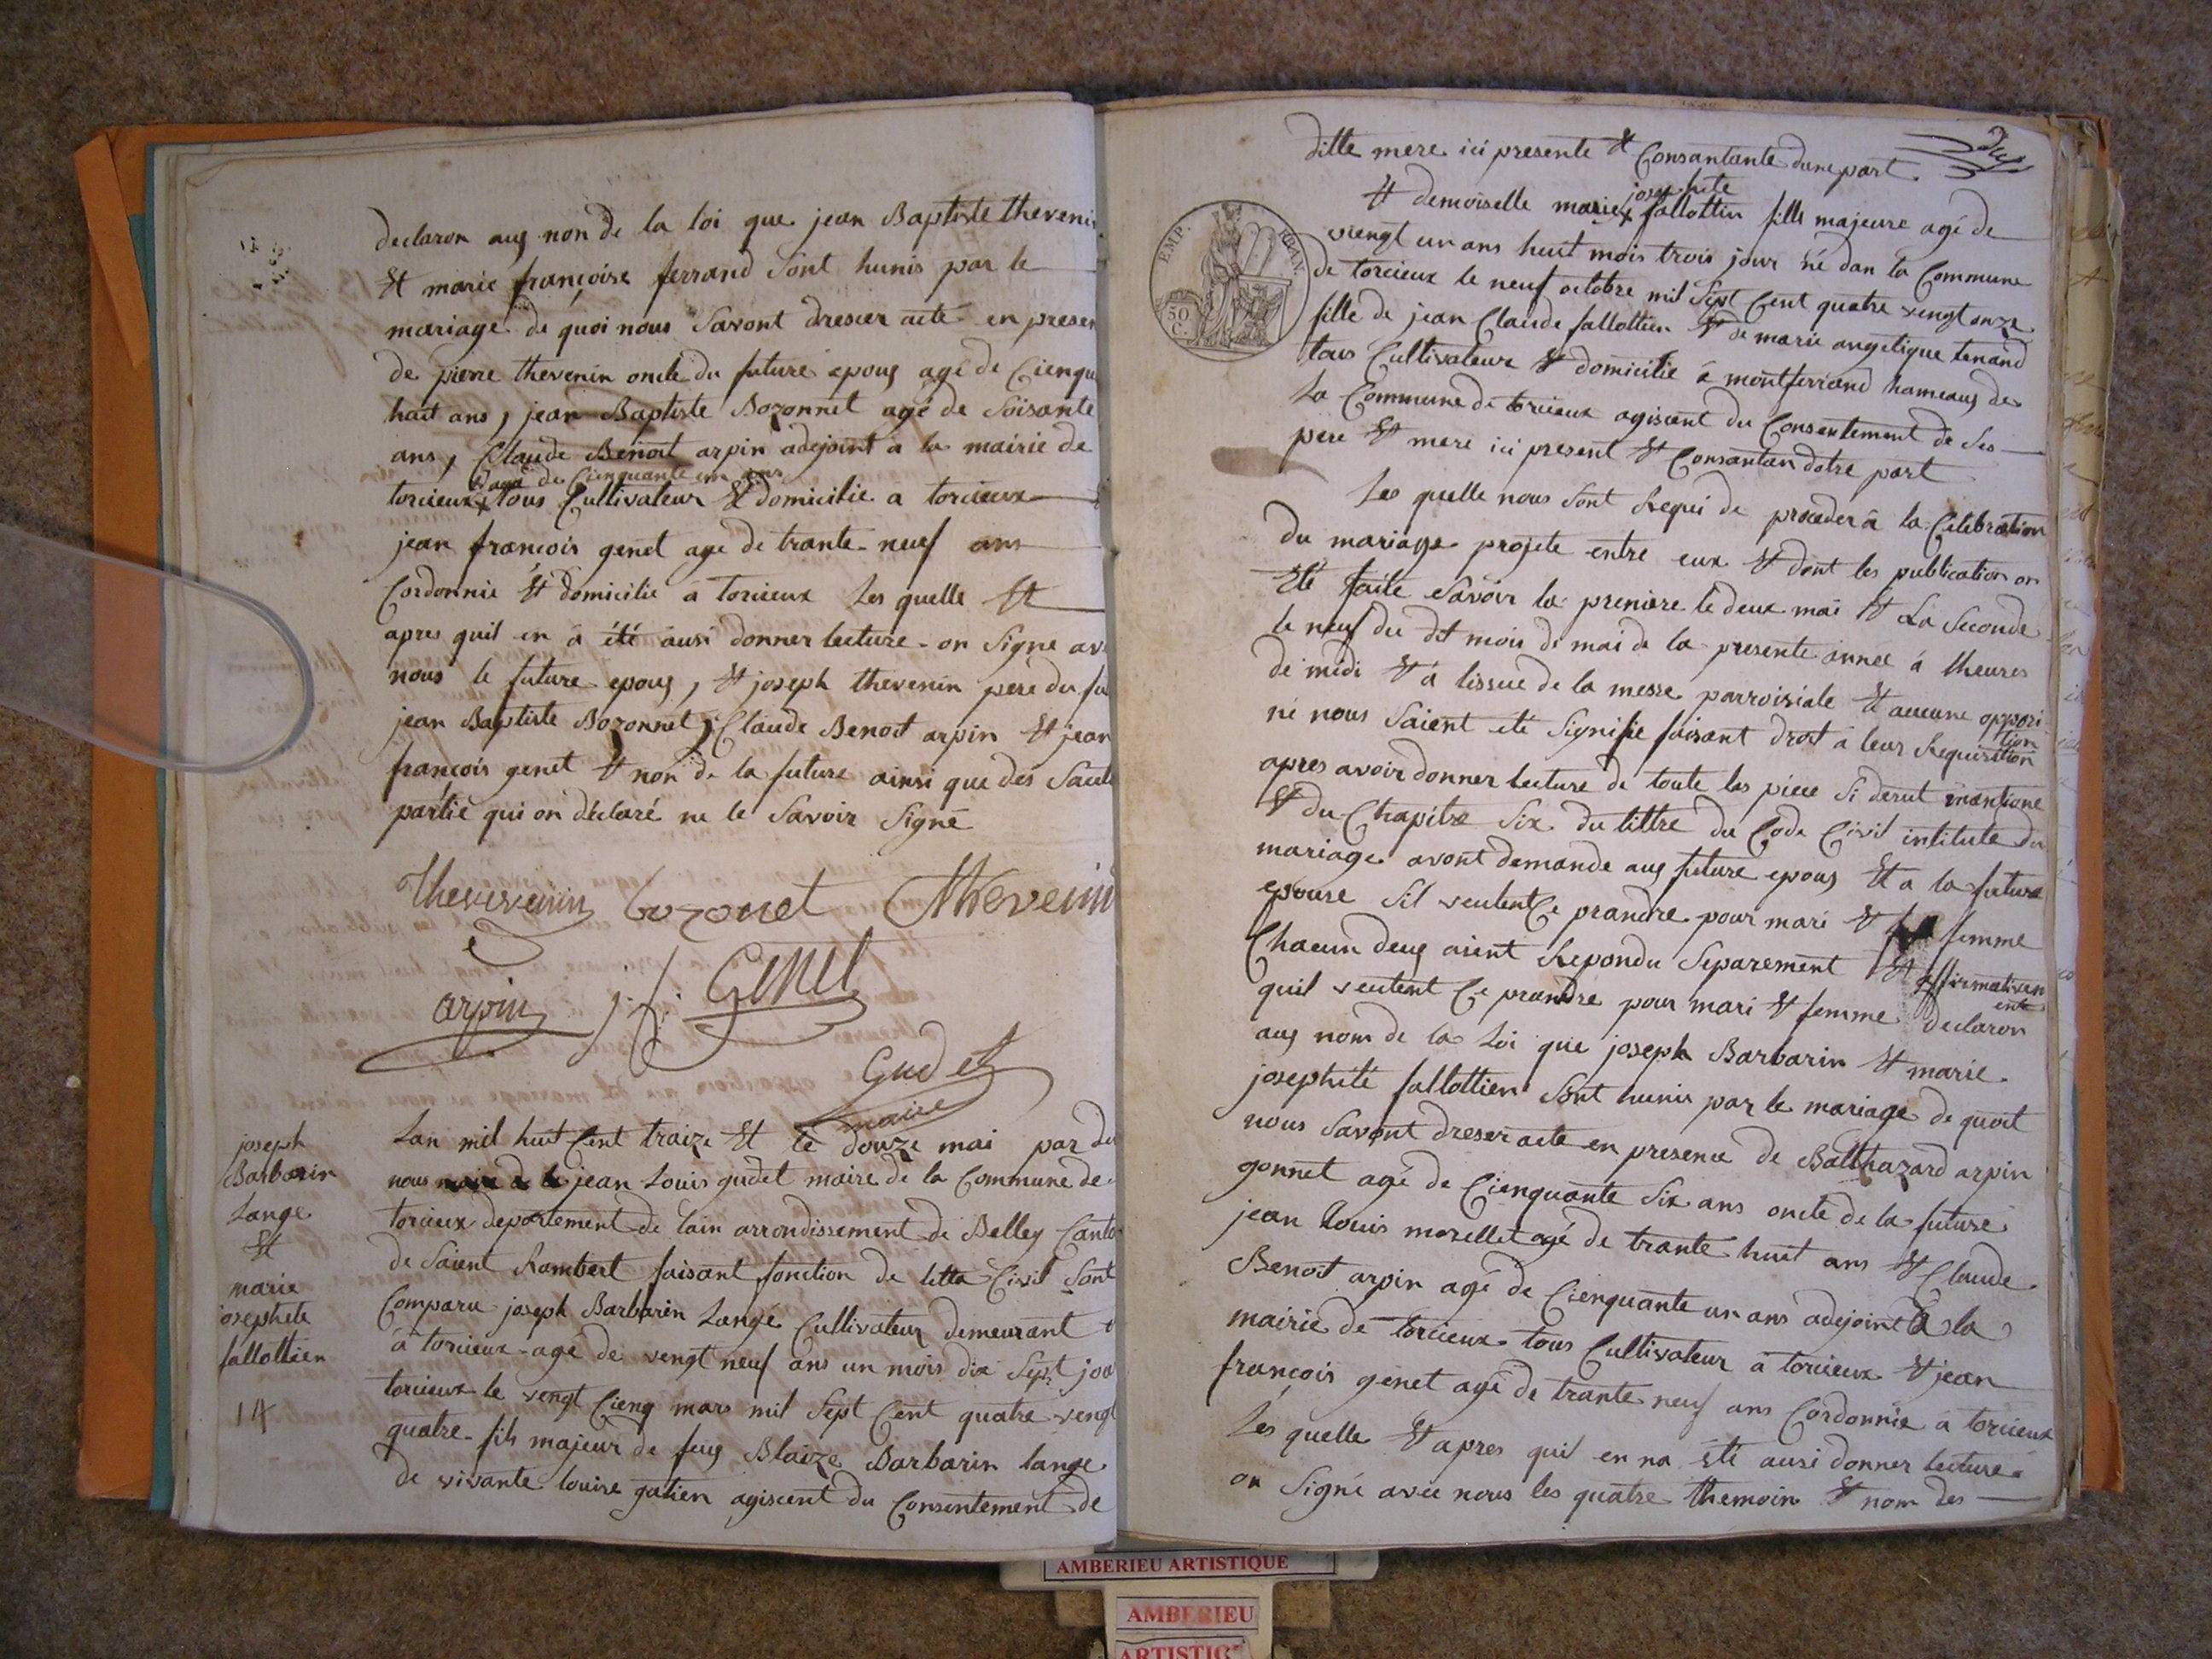 declaron aug non de la loi que jean Baptiste thevenin
Et marie françoise ferrand Sont hunis par le
mariage de quoi nous Savont dresser acte en presen
de pierre thevenin oncle du future epoug agé de Cienqu
huit ans, jean Baptiste Bozonnet agé de Soisante
ans, Claude Benoit arpin adejoint a la mairie de
agé de Cienquante un ans
torcieux tous Cultivateur Et domicilie a torcieux
jean françois genet age de trante neuf ans
Cordonnié Et domicilie a torcieux Les quelle Et
apres quil en a été ausi donner lecture on Signe av
nous le future epoug, Et joseph thevenin pere du fu
jean Baptiste Bozonnet, Claude Benoit arpin Et jean
françois genet Et non de la future ainsi que des
partie qui on déclaré ne le Savoir Signé
bozonet thevenin
arpin j. f. Genet
Gudet
maire
joseph
Barbarin
Lange
Et
marie
josephete
fallottien
14
Lan mil huit Cent traize Et le douze mai par de
nous jean Louis gudet maire de la Commune de
torcieux departement de lain arrondissement de Belley Canto
de Saient Rambert faisant fonction de letta Civil Sont
Comparu joseph Barbarin Langé Cultivateur demeurant
à torcieux agé de vengt neuf ans un mois dix Sept jou
torcieux le vengt Cienq mars mil Sept Cent quatre vengt
quatre fils majeur de feug Blaize Barbarin lange
de vivante louise gatien agiscent du Consentement de
ditte mere ici presente Et Consantante dune part
josephete
Et demoiselle marie fallottin fille majeure agé de
viengt un ans huit mois trois jour né dan la Commune
de torcieux le neuf octobre mil Sept Cent quatre vengt onze
EMP. FRAN.
50 C.
fille de jean Claude fallottien Et de marie angelique tenand
tous Cultivateur Et domicilie à montferrand hameaug de
La Commune de torcieux agiscent du Consentement de Ses
pere Et mere ici present Et Consantan dotre part
Les quelle nous Sont Requi de proceder à la Célébration
du mariage projete entre eux Et dont les publication on
Eté faite Savoir la premiere le deux mai Et La Seconde
le neuf du dit mois de mai de la presente année à lheures
de midi Et à lissue de la messe parroisiale Et aucune opposi
tion
ni nous Saient été Signifie faisant droit à leur Requisition
apres avoir donner lecture de toute les piece Si derut mantione
Et du Chapitre Six du tittre du Code Civil intitule du
mariage avont demande aug future epoug Et a la future
epouse Sil veulent Ce prandre pour mari Et femme
Chacun deug aient Repondu Separement Et affirmativem
ente
quil veulent Ce prandre pour mari Et femme declaron
aug nom de la Loi que joseph Barbarin Et marie
josephété fallottien Sont hunis par le mariage de quoit
nous Savont dreser acte en presence de Balthazard arpin
gonnet agé de Cienquante Six ans oncle de la future
jean Louis morellet agé de trante huit ans Et Claude
Benoit arpin agé de Cienquante un ans adejoint à la
mairie de torcieux tous Cultivateur à torcieux Et jean
françois genet agé de trante neuf ans Cordonnié à torcieux
Les quelle Et apres quil en na Eté ausi donner lecture
on Signé avec nous les quatre themoin Et nom des
AMBERIEU ARTISTIQUE
AMBERIEU